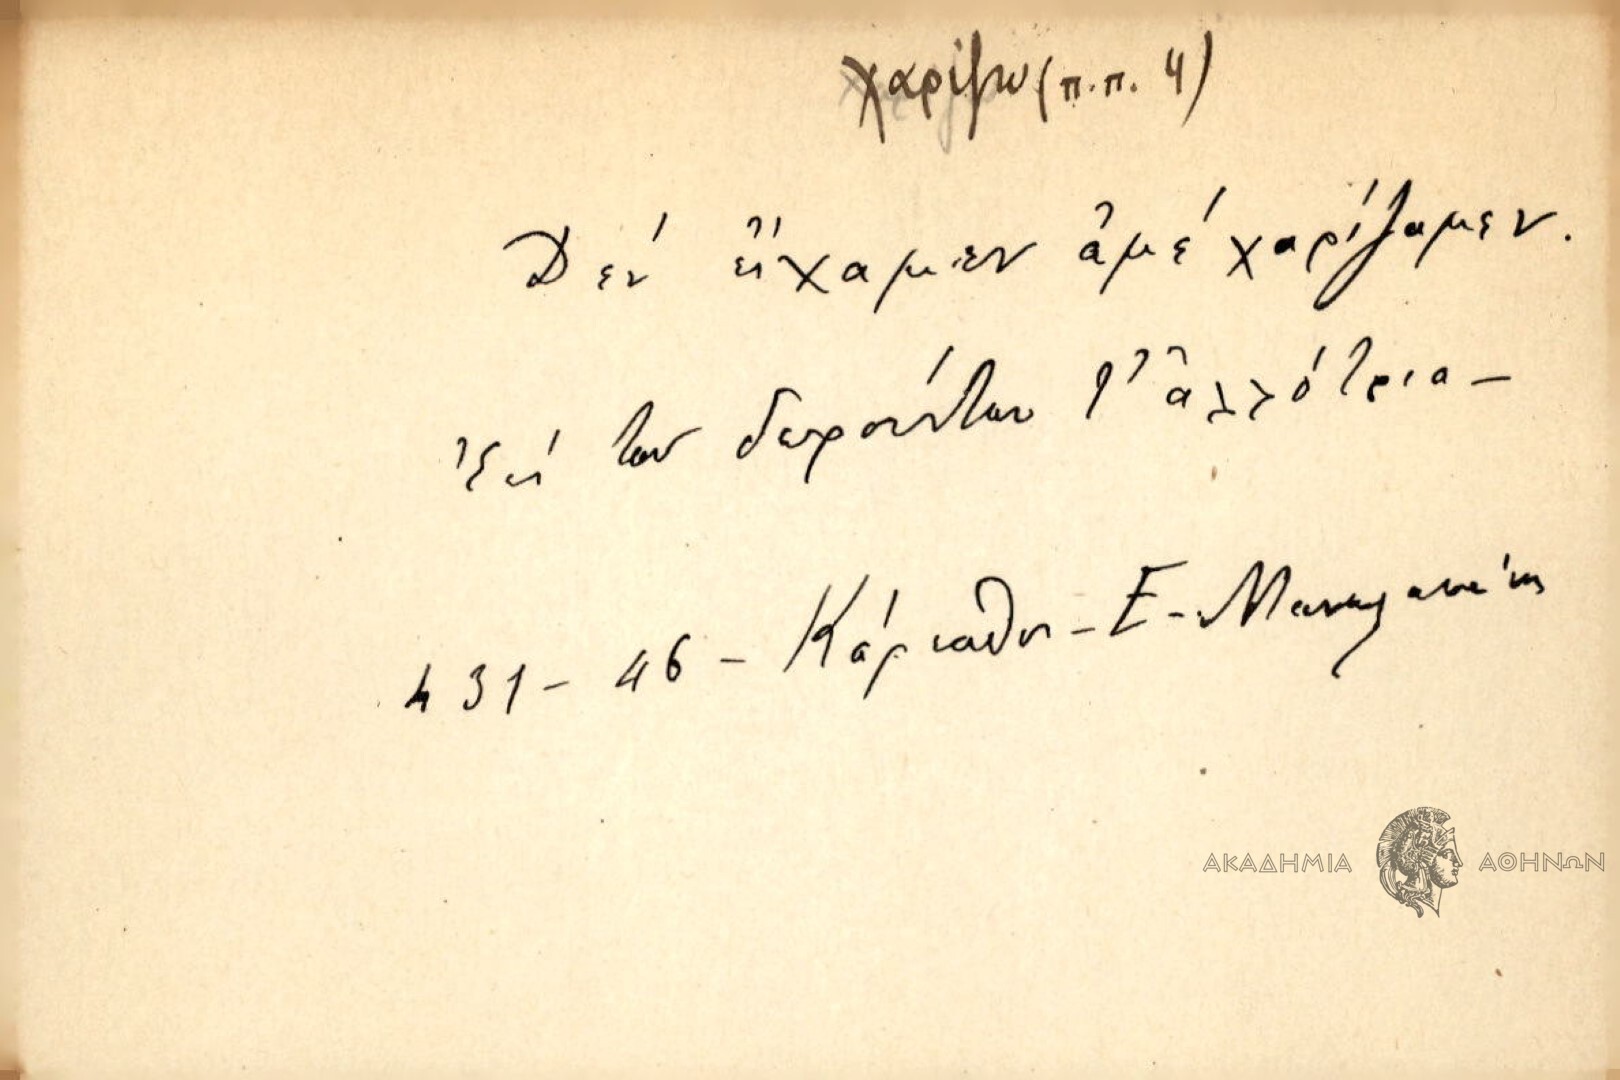 χαρίζω (π.π. 4)
Δέν εἴχαμεν ἀμέ χαρίζαμεν.
τῶν δωρούντων τ' ἀλλότρια -
431 - 46 - Κάρπαθος - Ε - Μανωλακάκης
ΑΚΑΔΗΜΙΑ ΑΘΗΝΩΝ